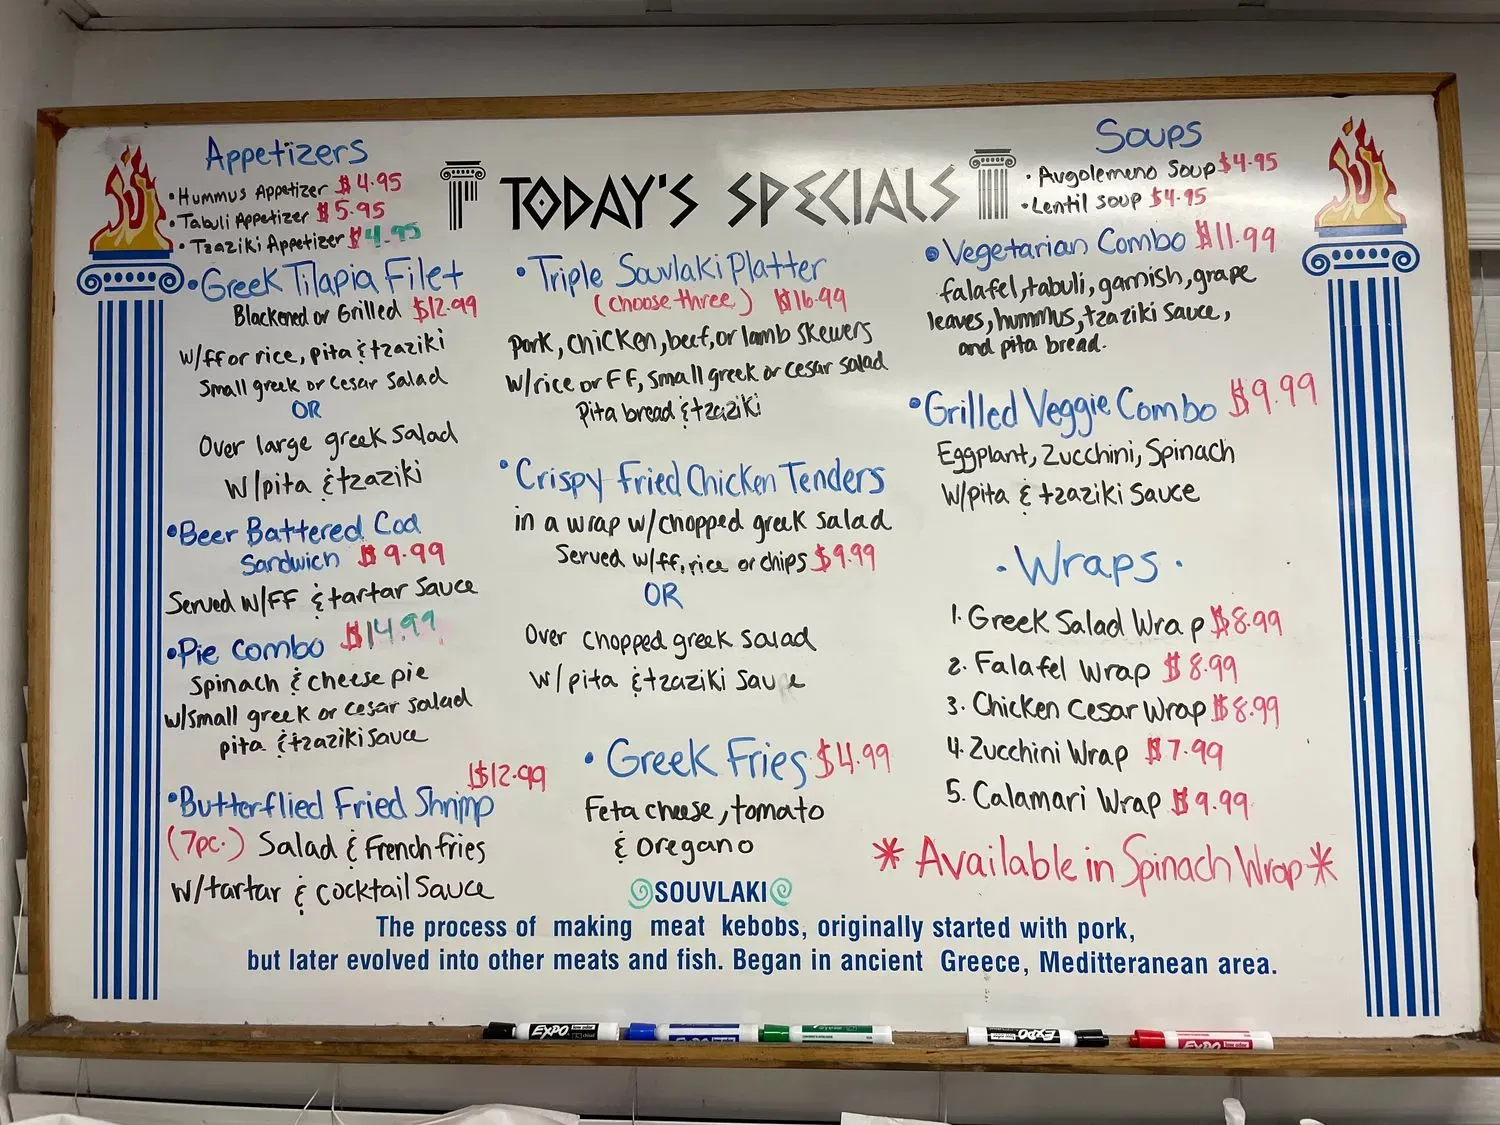 Appetizers
• Hummus Appetizer $4.95
• Tabuli Appetizer $5.95
• Tzaziki Appetizer $4.95
• Greek Tilapia Filet
Blackened or Grilled $12.99
w/ff or rice, pita & tzaziki
Small greek or cesar salad
OR
Over large greek salad
W/pita & tzaziki
• Beer Battered Cod
Sandwich $9.99
Served w/FF & tartar sauce
• Pie Combo $14.99
Spinach & cheese pie
w/small greek or cesar salad
pita & tzaziki sauce
$12.99
• Butterflied Fried Shrimp
(7pc.) Salad & French fries
w/tartar & cocktail sauce
TODAY'S SPECIALS
• Triple Souvlaki Platter
(choose three) $16.99
pork, chicken, beef, or lamb skewers
w/rice or FF, small greek or cesar salad
Pita bread & tzaziki
• Crispy Fried Chicken Tenders
in a wrap w/chopped greek salad
Served w/ff, rice or chips $9.99
OR
Over chopped greek salad
w/pita & tzaziki sau e
• Greek Fries $4.99
Feta cheese, tomato
& oregano
Soups
• Avgolemono Soup $4.95
• Lentil soup $4.95
• Vegetarian Combo $11.99
falafel, tabuli, garnish, grape
leaves, hummus, tzaziki sauce,
and pita bread.
• Grilled Veggie Combo $9.99
Eggplant, Zucchini, Spinach
W/pita & tzaziki Sauce
• Wraps •
1. Greek Salad Wrap $8.99
2. Falafel Wrap $8.99
3. Chicken Cesar Wrap $8.99
4. Zucchini Wrap $7.99
5. Calamari Wrap $9.99
* Available in Spinach Wrap *
SOUVLAKI
The process of making meat kebobs, originally started with pork,
but later evolved into other meats and fish. Began in ancient Greece, Meditteranean area.
EXPO
EXPO
EXPO
EXPO